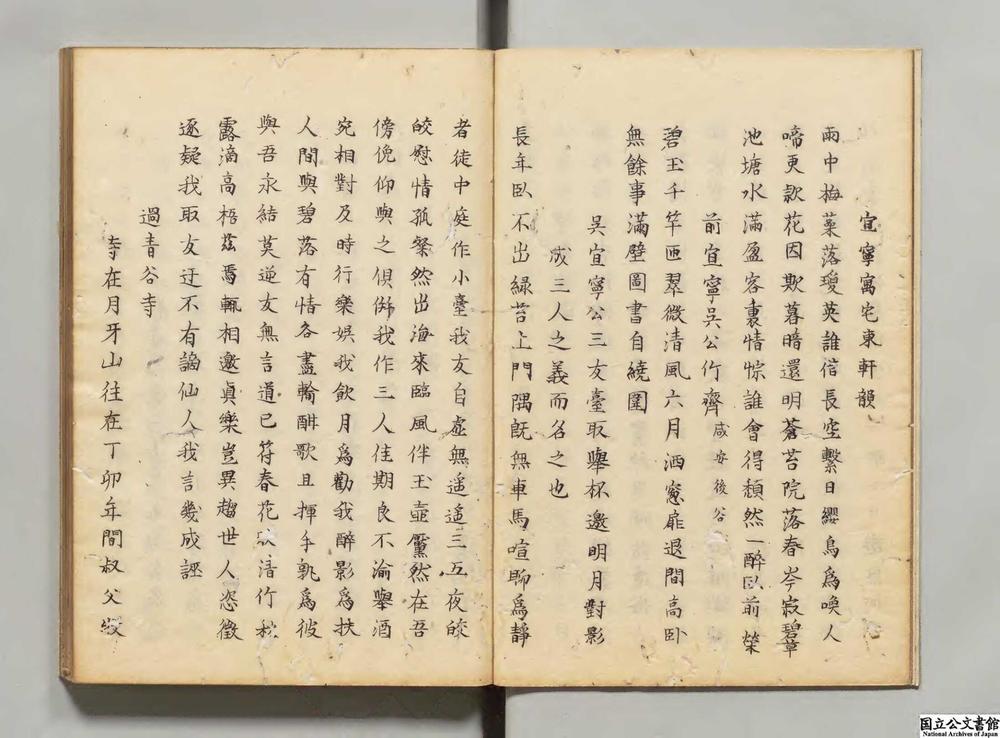 宜寧寓宅東軒韻
雨中梅蘂落瓊英誰信長空繫日纓鳥爲喚人
啼更款花因欺暮暗還明蒼苔院落春岑寂碧草
池塘水滿盈客裏情悰誰會得頹然一醉臥前榮
前宜寧吳公竹齋 咸安後谷
碧玉千竿匝翠微清風六月洒窓扉退閒高臥
無餘事滿壁圖書自繞圍
吳宜寧公三友臺取擧杯邀明月對影
成三人之義而名之也
長年臥不出綠苔上門隅旣無車馬喧聊爲靜
者徒中庭作小臺我友自虛無遥遥三五夜皎
皎慰情孤粲然出海來臨風伴玉壺儼然在吾
傍俛仰與之俱倂我作三人佳期良不渝擧酒
宛相對及時行樂娛我飲月爲勸我醉影爲扶
人間與碧落有情各盡輸酣歌且揮手孰爲彼
與吾永結莫逆友無言道已符春花竹秋
露滴高梧玆焉輒相邀眞樂豈異趨世人恣徵
逐疑我取友迂不有謫仙人我言幾成誣
過青谷寺
寺在月牙山往在丁卯年間叔父牧
国立公文書館
National Archives of Japan